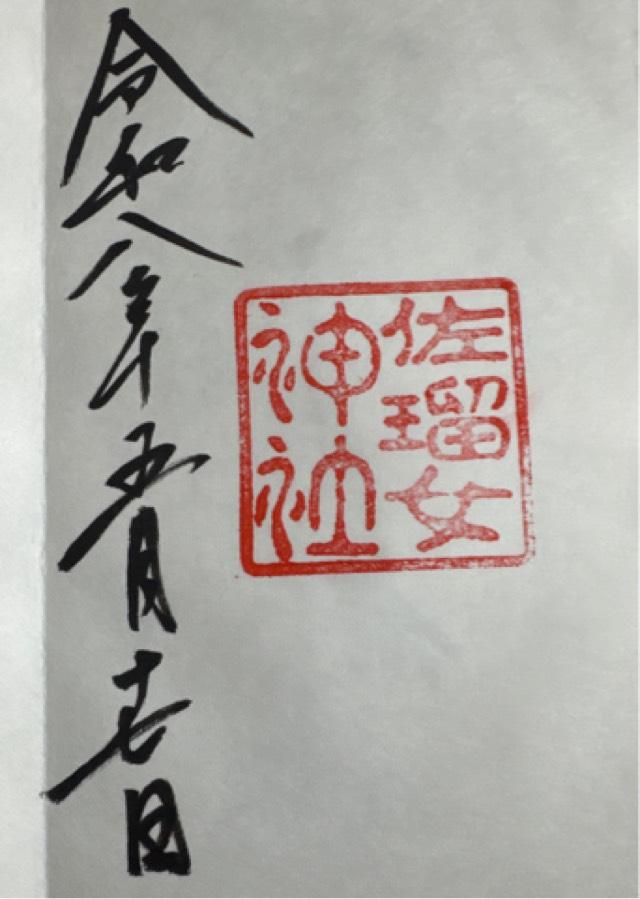 佐瑠女
神社
令和八年五月十七日